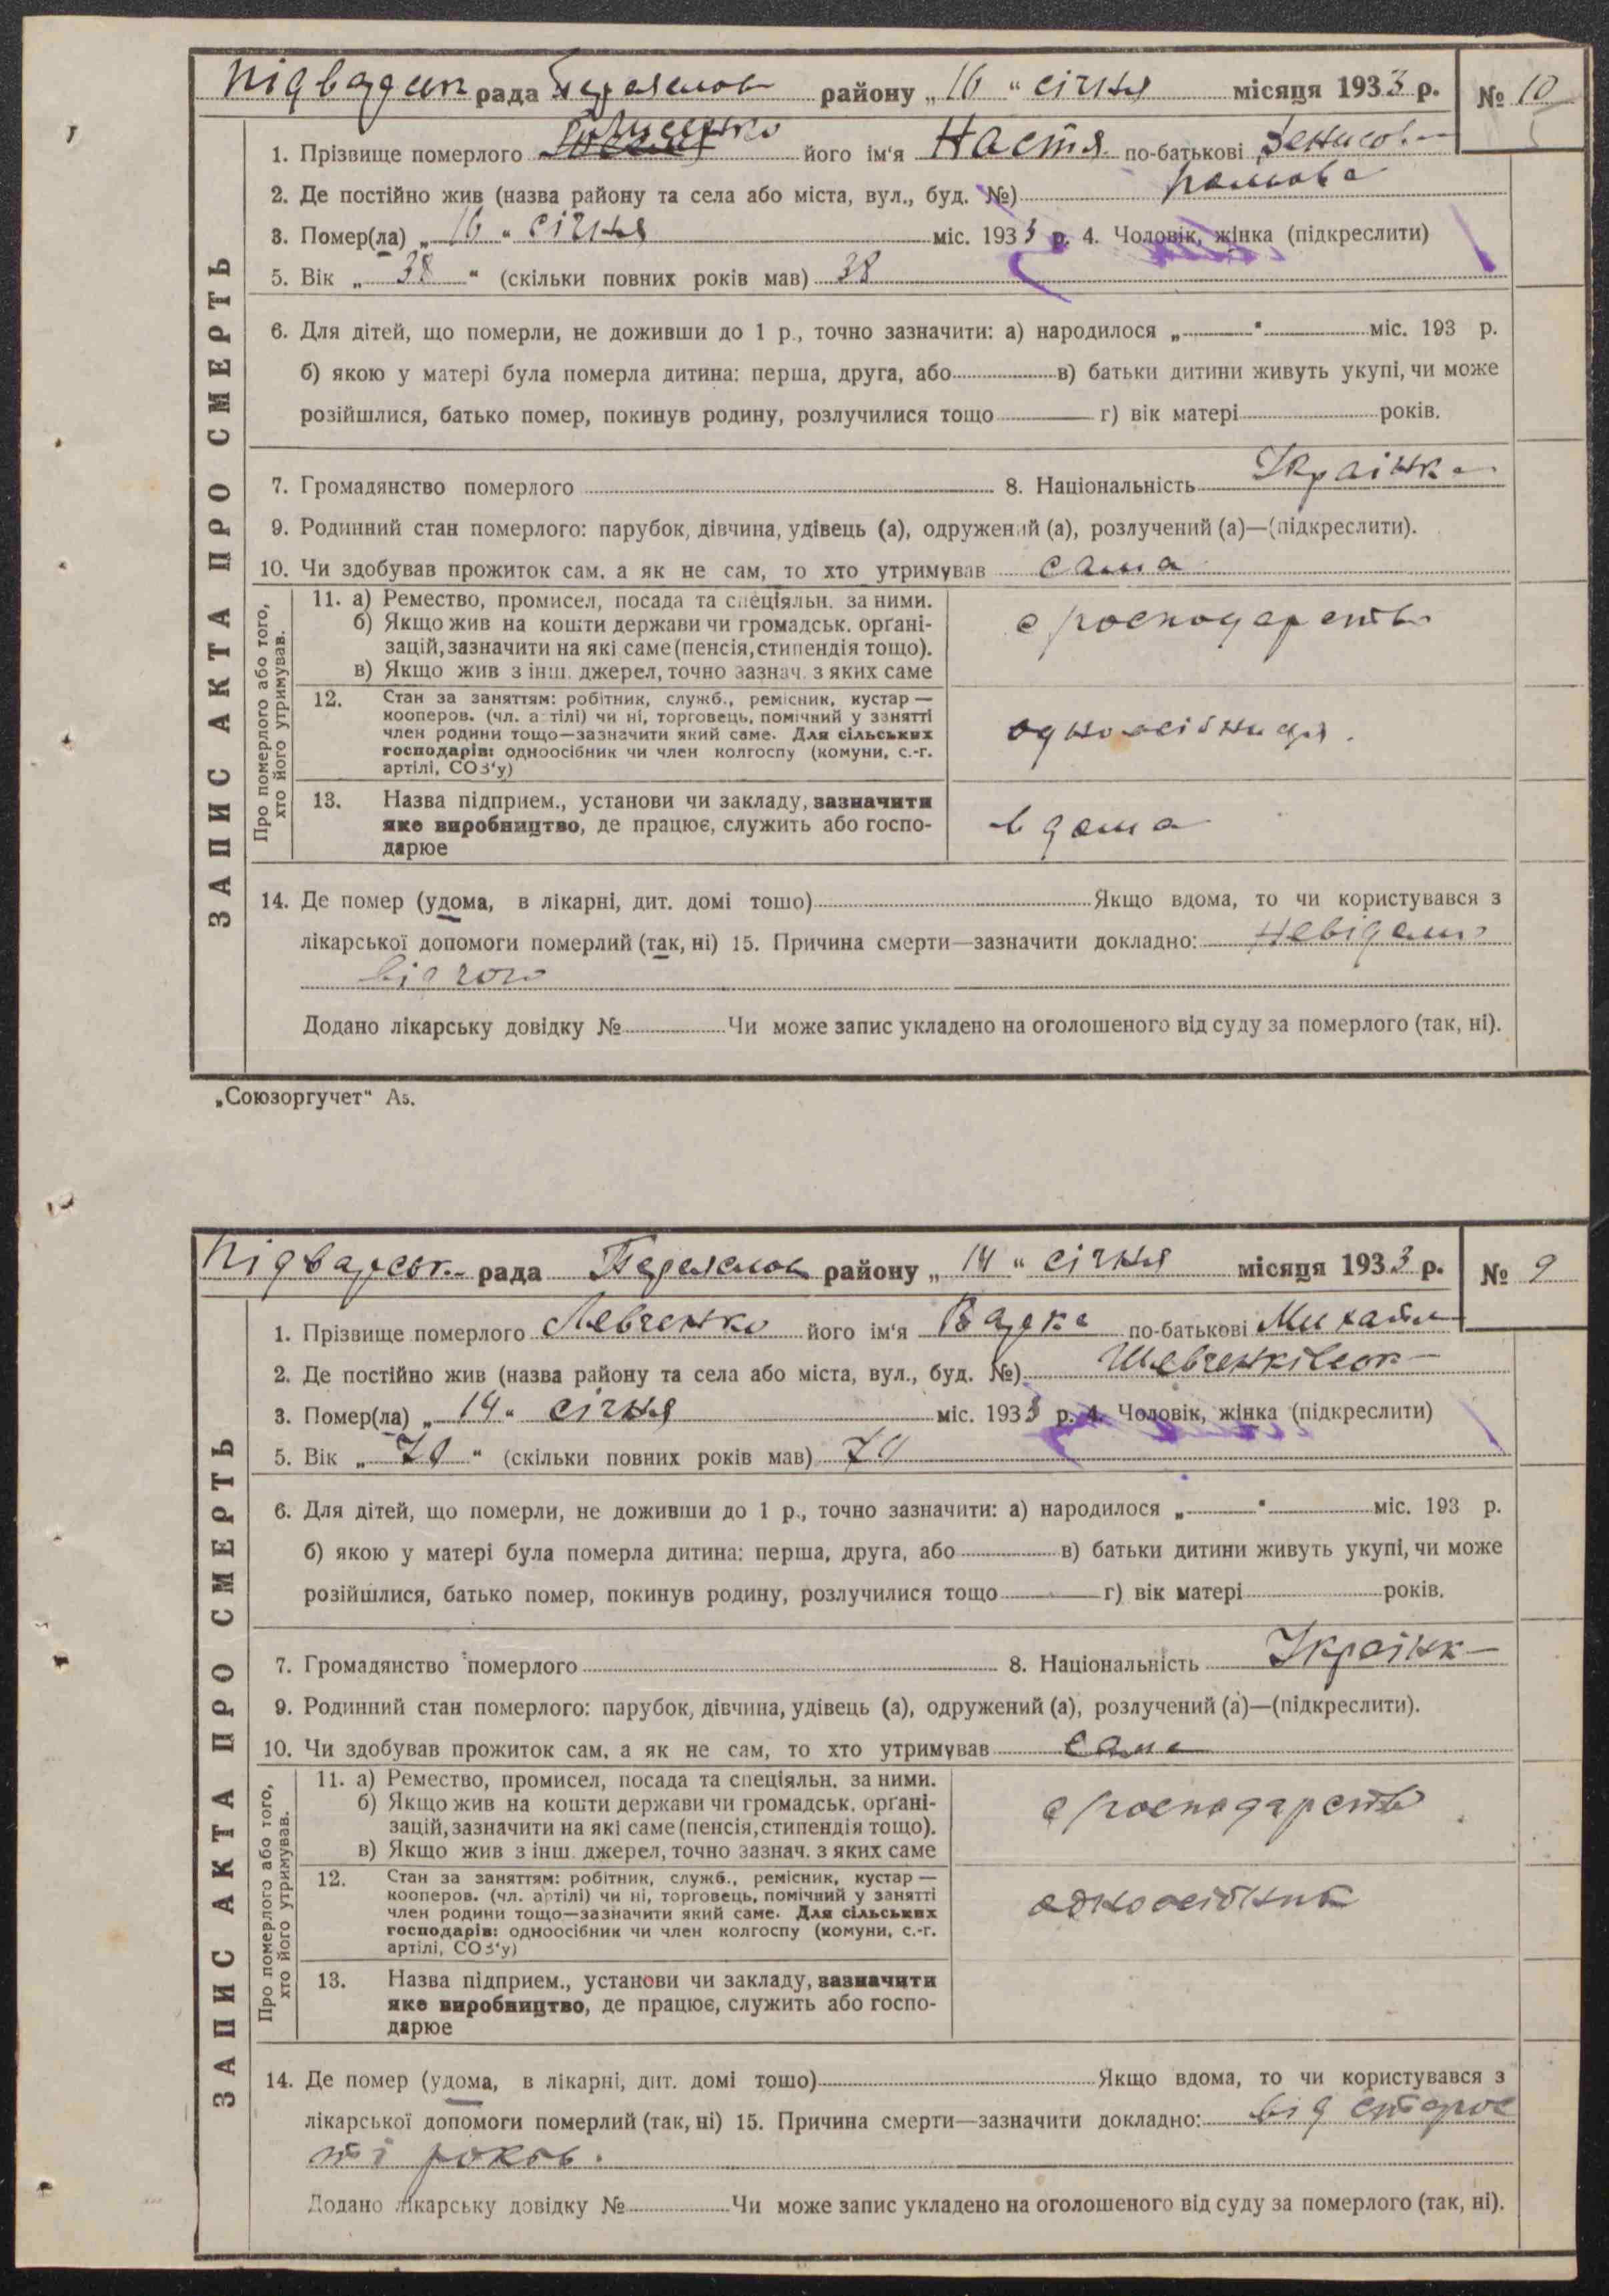 Підварськ рада Переяслов району „16“ січня місяця 1933 р. № 10
1. Прізвище померлого його ім‘я Настя по-батькові Денисов.
2. Де постійно жив (назва району та села або міста, вул., буд. №)
3. Помер(ла) „16“ січня міс. 1933 р. 4. Чоловік, жінка (підкреслити)
5. Вік „38“ (скільки повних років мав) 38
6. Для дітей, що померли, не доживши до 1 р., точно зазначити: а) народилося „ “ міс. 193 р.
б) якою у матері була померла дитина: перша, друга, або в) батьки дитини живуть укупі, чи може
розійшлися, батько помер, покинув родину, розлучилися тощо г) вік матері років.
7. Громадянство померлого 8. Національність Українка
9. Родинний стан померлого: парубок, дівчина, удівець (а), одружений (а), розлучений (а)—(підкреслити).
10. Чи здобував прожиток сам, а як не сам, то хто утримував сама
ЗАПИС АКТА ПРО СМЕРТЬ
Про померлого або того,
хто його утримував.
11. а) Ремество, промисел, посада та спеціяльн. за ними.
б) Якщо жив на кошти держави чи громадськ. орґані-
зацій, зазначити на які саме (пенсія, стипендія тощо).
в) Якщо жив з інш. джерел, точно зазнач. з яких саме
с/господарств
12. Стан за заняттям: робітник, служб., ремісник, кустар —
кооперов. (чл. артілі) чи ні, торговець, помічний у занятті
член родини тощо—зазначити який саме. Для сільських
господарів: одноосібник чи член колгоспу (комуни, с.-г.
артілі, СОЗ‘у)
одноосібниця.
13. Назва підприєм., установи чи закладу, зазначити
яке виробництво, де працює, служить або госпо-
дарює
вдома
14. Де помер (удома, в лікарні, дит. домі тошо) Якщо вдома, то чи користувався з
лікарської допомоги померлий (так, ні) 15. Причина смерти—зазначити докладно: невідомо
від чого
Додано лікарську довідку № Чи може запис укладено на оголошеного від суду за померлого (так, ні).
„Союзоргучет“ А5.
Підварськ. рада Переяслов району „14“ січня місяця 1933 р. № 9
1. Прізвище померлого Левченко його ім‘я Варка по-батькові Михайл
2. Де постійно жив (назва району та села або міста, вул., буд. №) Шевченківськ
3. Помер(ла) „14“ січня міс. 1933 р. 4. Чоловік, жінка (підкреслити)
5. Вік „70“ (скільки повних років мав) 70
6. Для дітей, що померли, не доживши до 1 р., точно зазначити: а) народилося „ “ міс. 193 р.
б) якою у матері була померла дитина: перша, друга, або в) батьки дитини живуть укупі, чи може
розійшлися, батько помер, покинув родину, розлучилися тощо г) вік матері років.
7. Громадянство померлого 8. Національність Українк
9. Родинний стан померлого: парубок, дівчина, удівець (а), одружений (а), розлучений (а)—(підкреслити).
10. Чи здобував прожиток сам, а як не сам, то хто утримував сама
ЗАПИС АКТА ПРО СМЕРТЬ
Про померлого або того,
хто його утримував.
11. а) Ремество, промисел, посада та спеціяльн. за ними.
б) Якщо жив на кошти держави чи громадськ. орґані-
зацій, зазначити на які саме (пенсія, стипендія тощо).
в) Якщо жив з інш. джерел, точно зазнач. з яких саме
с/господарств
12. Стан за заняттям: робітник, служб., ремісник, кустар —
кооперов. (чл. артілі) чи ні, торговець, помічний у занятті
член родини тощо—зазначити який саме. Для сільських
господарів: одноосібник чи член колгоспу (комуни, с.-г.
артілі, СОЗ‘у)
одноосібник
13. Назва підприєм., установи чи закладу, зазначити
яке виробництво, де працює, служить або госпо-
дарює
14. Де помер (удома, в лікарні, дит. домі тошо) Якщо вдома, то чи користувався з
лікарської допомоги померлий (так, ні) 15. Причина смерти—зазначити докладно: від старос
ті років.
Додано лікарську довідку № Чи може запис укладено на оголошеного від суду за померлого (так, ні).